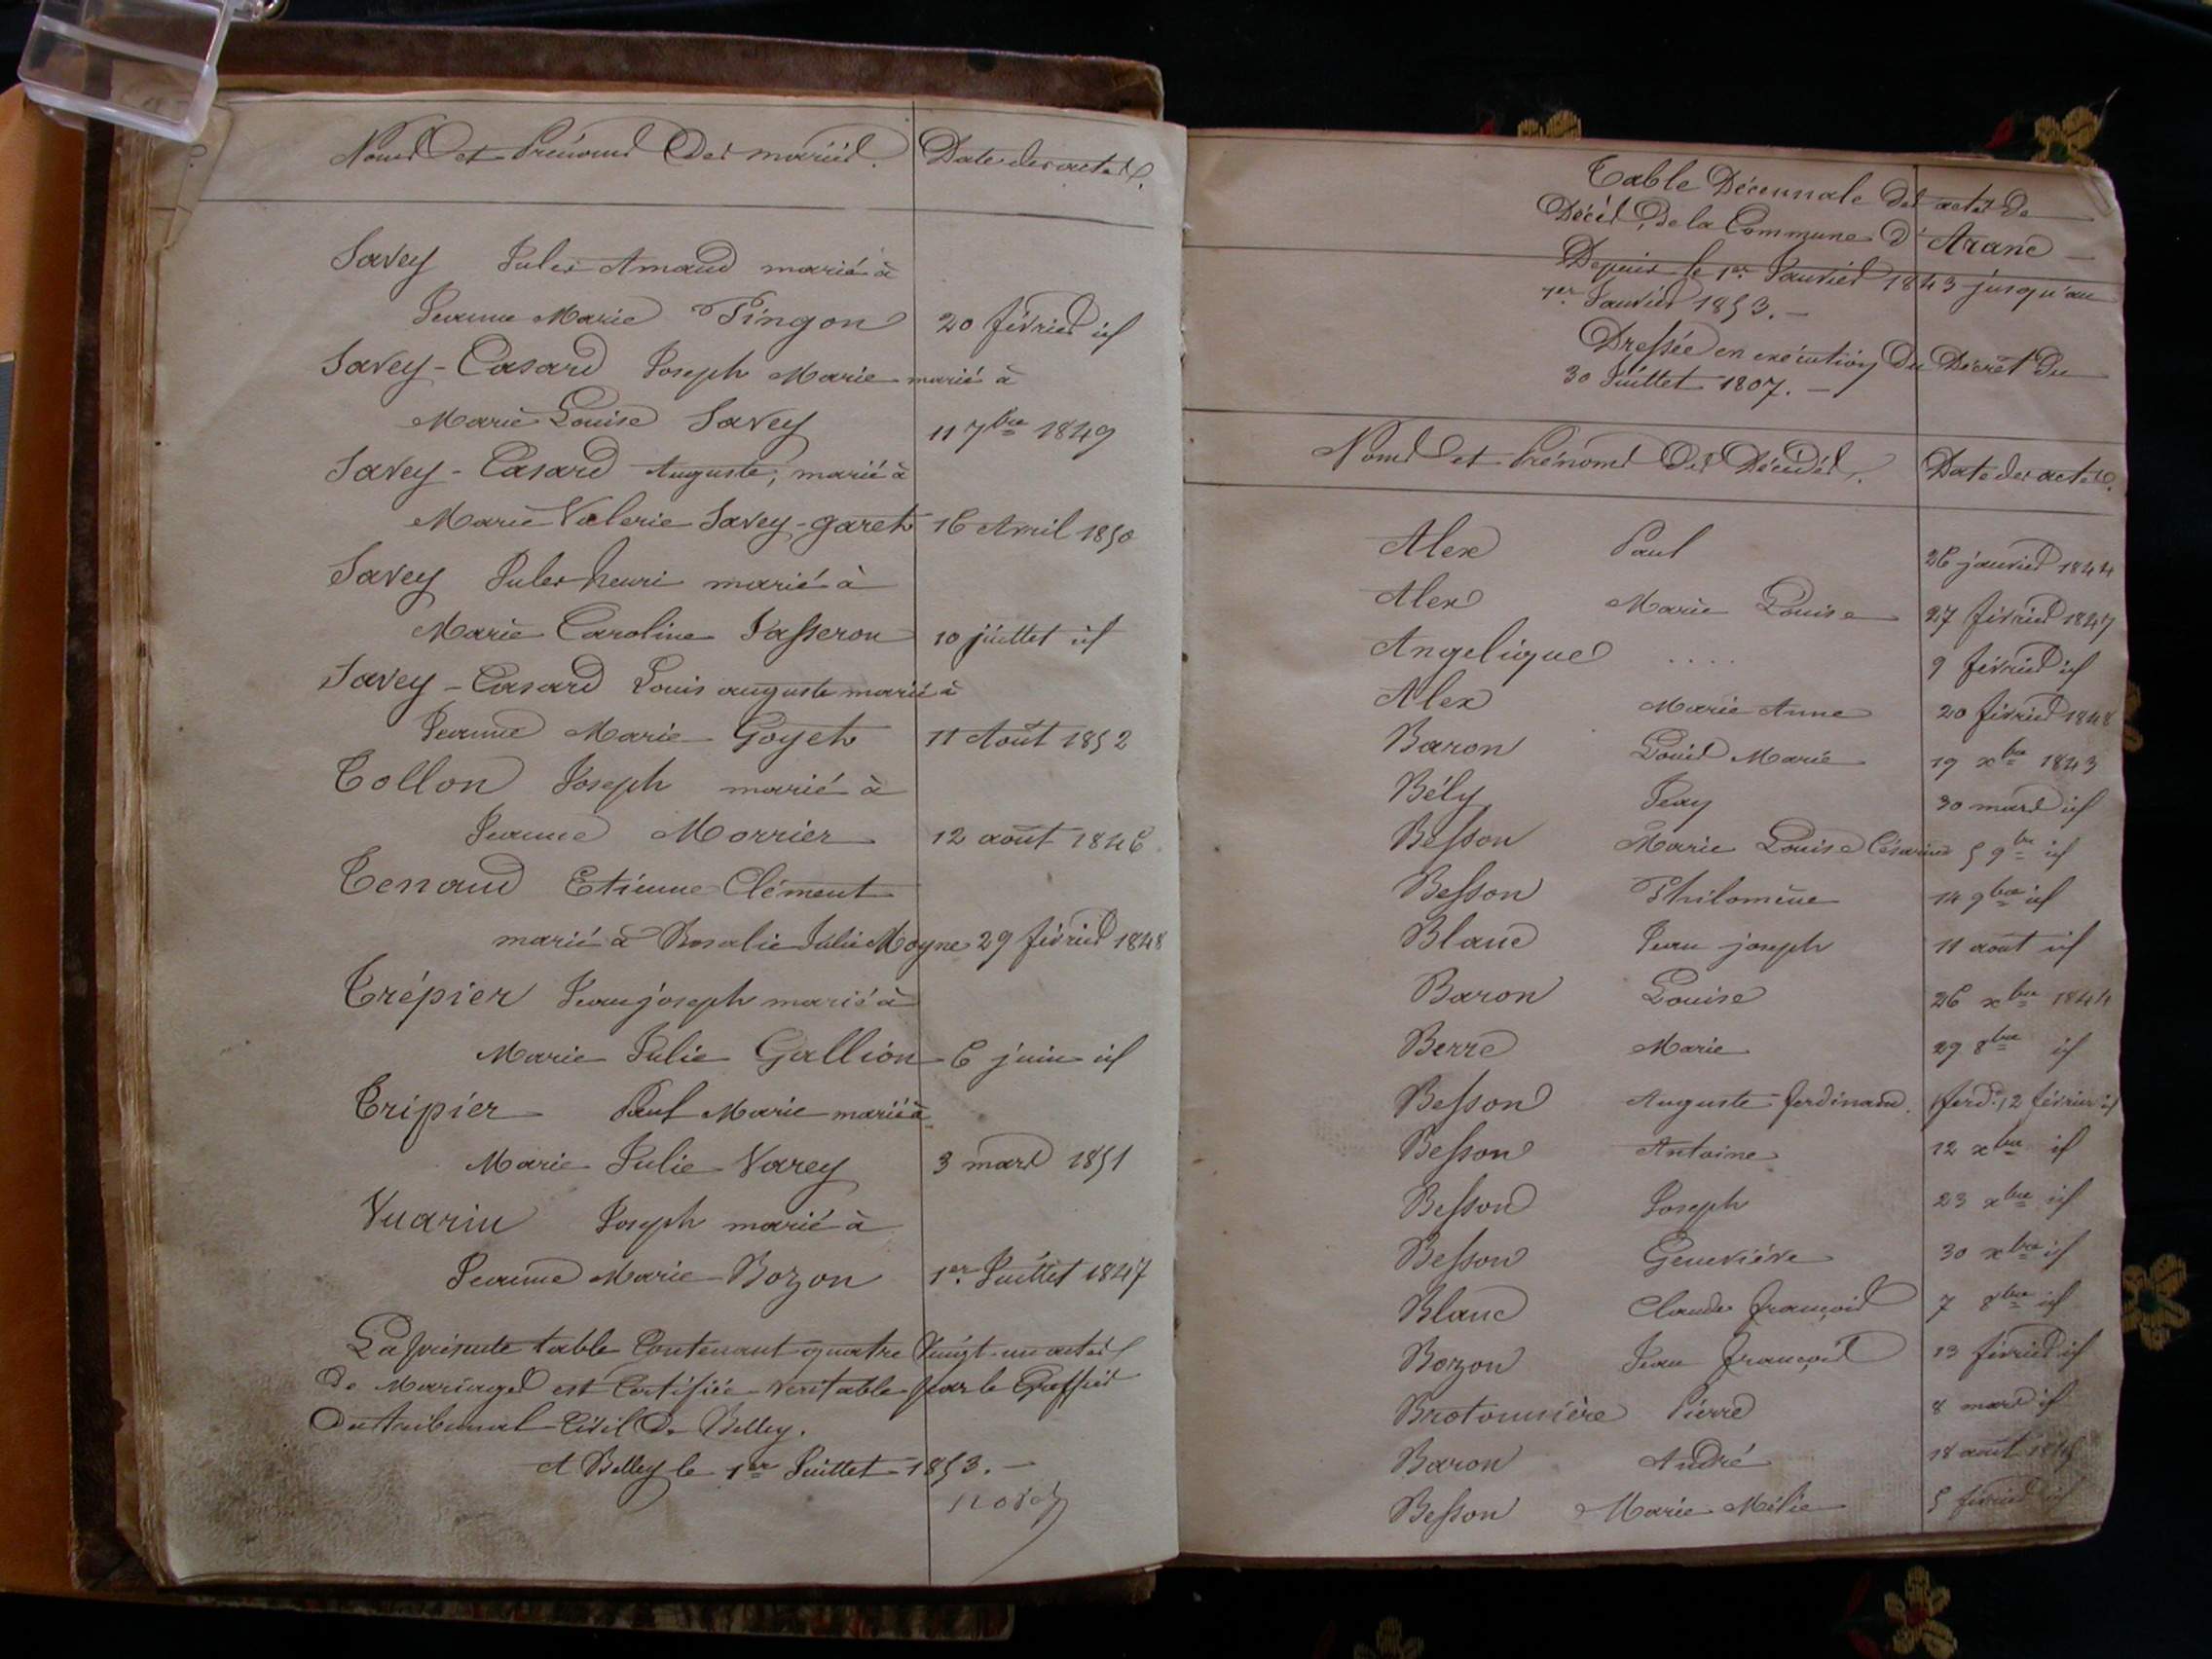 Noms et Prénoms des mariés. Date des actes.
Savey Jules Amand marié à
Jeanne Marie Pingon 20 février id
Savey-Casard Joseph Marie marié à
Marie Louise Savey 11 7bre 1849
Savey-Casard Auguste, marié à
Marie Valerie Savey-garet 16 Avril 1850
Savey Jules henri marié à
Marie Caroline Vasseron 10 juillet id
Savey-Casard Louis auguste marié à
Jeanne Marie Goyet 11 Août 1852
Tollon Joseph marié à
Jeanne Morrier 12 août 1846
Tenand Etienne Clément
marié à Rosalie Julie Moyne 29 février 1848
Trépier Jean joseph marié à
Marie Julie Gallion 6 juin id
Tripier Paul Marie marié à
Marie Julie Varey 3 mars 1851
Vuarin Joseph marié à
Jeanne Marie Bozon 1er Juillet 1847
La présente table Contenant quatre Vingt un actes
de Mariages est Certifiée veritable par le Greffier
du tribunal Civil de Belley.
A Belley le 1er Juillet 1853.
Table Décennale des actes de
Décès, de la Commune d'Aranc
Depuis le 1er Janvier 1843 jusqu'au
1er Janvier 1853.
Dressée en exécution du Décret du
30 Juillet 1807.
Noms et Prénoms des Décédés. Date des actes.
Alex Paul 26 janvier 1844
Alex Marie Louise 27 février 1847
Angelique .... 9 février id
Alex Marie Anne 20 février 1848
Baron Louis Marie 19 xbre 1843
Bély Jean 30 mars id
Besson Marie Louise Césarine 5 9bre id
Besson Philomène 14 9bre id
Blanc Jean joseph 11 aout id
Baron Louise 26 xbre 1844
Berre Marie 29 8bre id
Besson Auguste ferdinand. 12 février id
Besson Antoine 12 xbre id
Besson Joseph 23 xbre id
Besson Geneviève 30 xbre id
Blanc Claude françois 7 8bre id
Bozon Jean françois 13 février id
Brotonnière Pierre 8 mars id
Baron André 18 août 1845
Besson Marie Mélie 5 février id